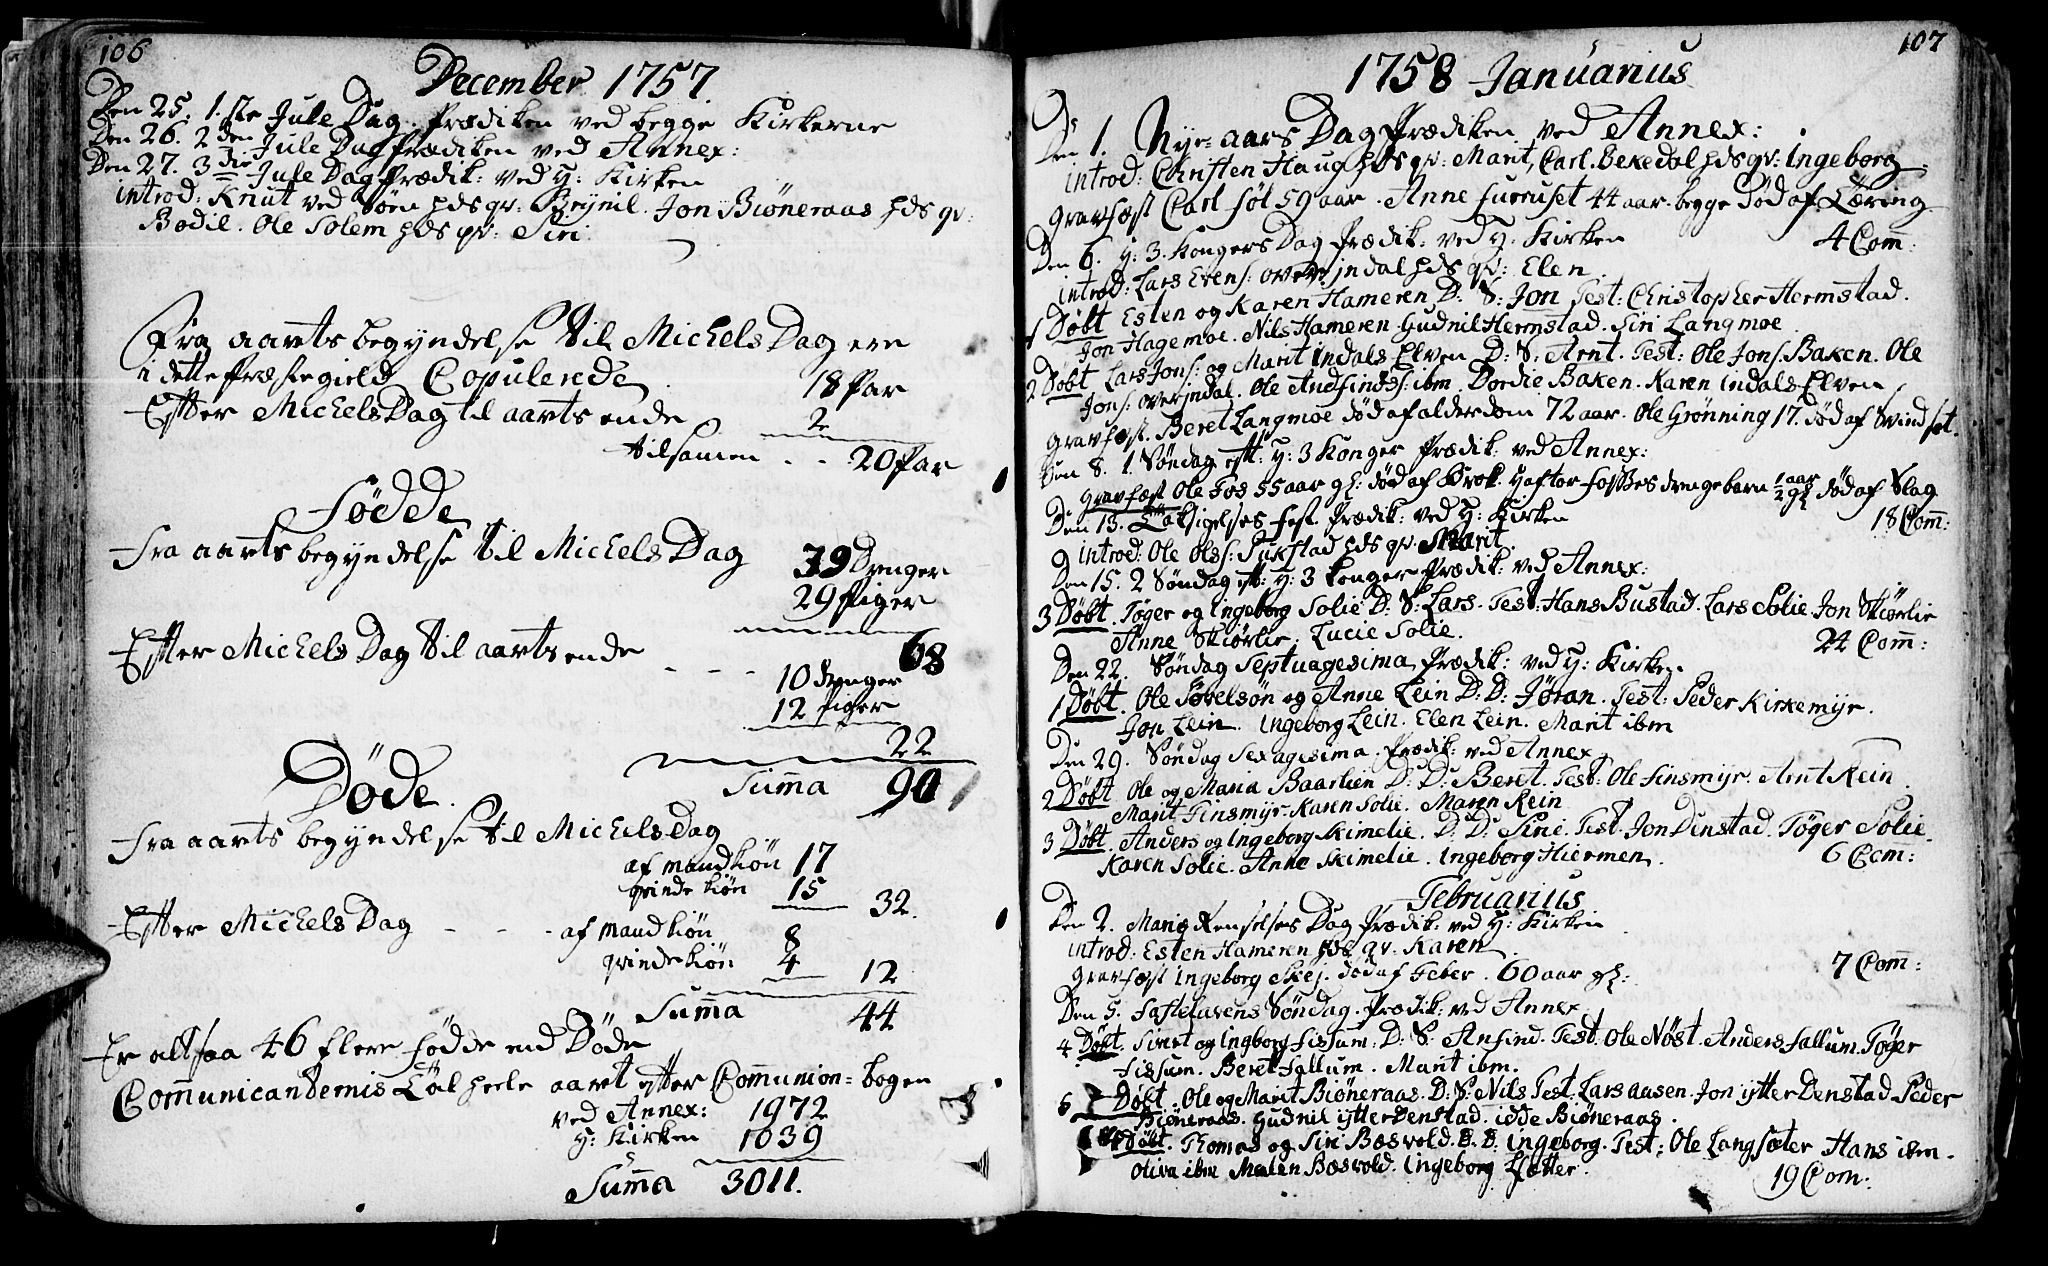 106
December 1757.
Den 25. 1.ste Jule Dag. Prædiken ved begge Kirkerne
Den 26. 2den Jule Dag Prædiken ved Annex:
Den 27. 3die Jule Dag Prædik: ved H: Kirken
introd: Knut ved Søen hds qv: Brynil. Jon Biøneraas hds qv:
Bodil. Ole Solem hds qv: Siri.
Fra aarets begyndelse til Michels Dag ere
i dette Præstegield Copulerede 18 Par
Efter Michels Dag til aarets ende 2
tilsamen - - 20 Par
Fødde
Fra aarets begyndelse til Michels Dag 39 Drenger
29 Piger
68
Efter Michels Dag til aarets ende - - -
10 drenger
12 Piger
22
Summa 90
Døde.
Fra aarets begyndelse til Michels Dag
af mandkiøn 17
qvindekiøn 15
32.
Efter Michels Dag - - - af mandkiøn 8
qvindekiøn 4 12
Summa 44
Er altsaa 46 flere fødde end Døde
Communicanternis Tal heele aaret efter Communion-bogen
ved Annex: 1972
H: Kirken 1039
Summa 3011.
107
1758 Januarius
Den 1. Nyt-aars Dag Prædiken ved Annex:
introd: Christen Haug hds qv: Marit, Carl Bekedal hds qv: Ingeborg.
gravfæst Carl Føl 59 aar. Anne Furuset 44 aar. begge død af Tæring
4 Com:
Den 6. H: 3. Kongers Dag Prædik: ved H: Kirken
introd: Lars Evens: overindal hds qv: Elen.
1 Døbt Esten og Karen Hameren D: S: Jon Test: Christopher Hermstad.
Jon Hagemoe. Nils Hameren. Gudnil Hermstad. Siri Langmoe
2 Døbt Lars Jons: og Marit Indals Elven D: S: Arnt. Test: Ole Jons. Baken. Ole
Jons: overindal. Ole Andfinds: ibm. Dordie Baken. Karen indals Elven
gravfæst. Beret Langmoe død af alderdom 72 aar. Ole Grønning 17. død af Svindsot.
Den 8. 1 Søndag eft: H: 3 Konger Prædik: ved Annex:
gravfæst Ole Fos 55 aar gl: død af Brok Hafter Fosses drengebarn 1/2 aar gl død af Slag
18 Com:
Den 13. Taksigelses fest Prædik: ved H: Kirken
introd: Ole Ols: Sukstad hds qv: Marit.
Den 15. 2 Søndag eft: H: 3 Konger Prædik: ved Annex:
3 Døbt. Tøger og Ingeborg Solie D: S: Lars. Test: Hans Bustad. Lars Solie Jon Skiørlie
Anne Skiørlie. Lucie Solie.
24 Com:
Den 22. Søndag Septuagesima Prædik: ved H: Kirken
1 Døbt. Ole Tøvelsøn og Anne Lein D: D: Jøran. Test: Peder Kirkemyr.
Jon Lein. Ingeborg Lein. Elen Lein. Marit ibm
Den 29. Søndag Sexagesima. Prædik: ved Annex
2 Døbt Ole og Maria Baarlien D: D: Beret. Test: Ole Finsmyr. Arnt Rein
Marit Finsmyr. Karen Solie. Maren Rein
3 Døbt. Anders og Ingeborg Skimelie. D: D: Sirie. Test. Jon Denstad. Tøger Solie.
Karen Solie. Anne Skimelie. Ingeborg Hiermen.
6 Com:
Februarius
Den 2. Mariæ Renselses Dag Prædik: ved H: Kirken
introd: Esten Hameren hds qv: Karen
gravfæst Ingeborg Skej. død af Feber. 60 aar gl:
7 Com:
Den 5. Fastelavens Søndag. Prædik: ved Annex
4 Døbt. Sivert og Ingborg Fissum: D: S: Anfind. Test: Ole Nøst. Anders Fallum. Tøger
Fissum. Beret Fallum. Marit ibm.
5 Døbt. Ole og Marit Biøneraas. D: S: Nils Test: Lars aasen. Jon ytter Denstad. Peder
Biøneraas. Gudnil ytter Denstad. idde Biøneraas.
Døbt. Thomas og Siri Bæsvold. D: D: Ingeborg. Test: Ole Langsæter Hans ibm.
Oliva ibm Malen Bæsvold. Ingeborg Sætter.
19 Com: